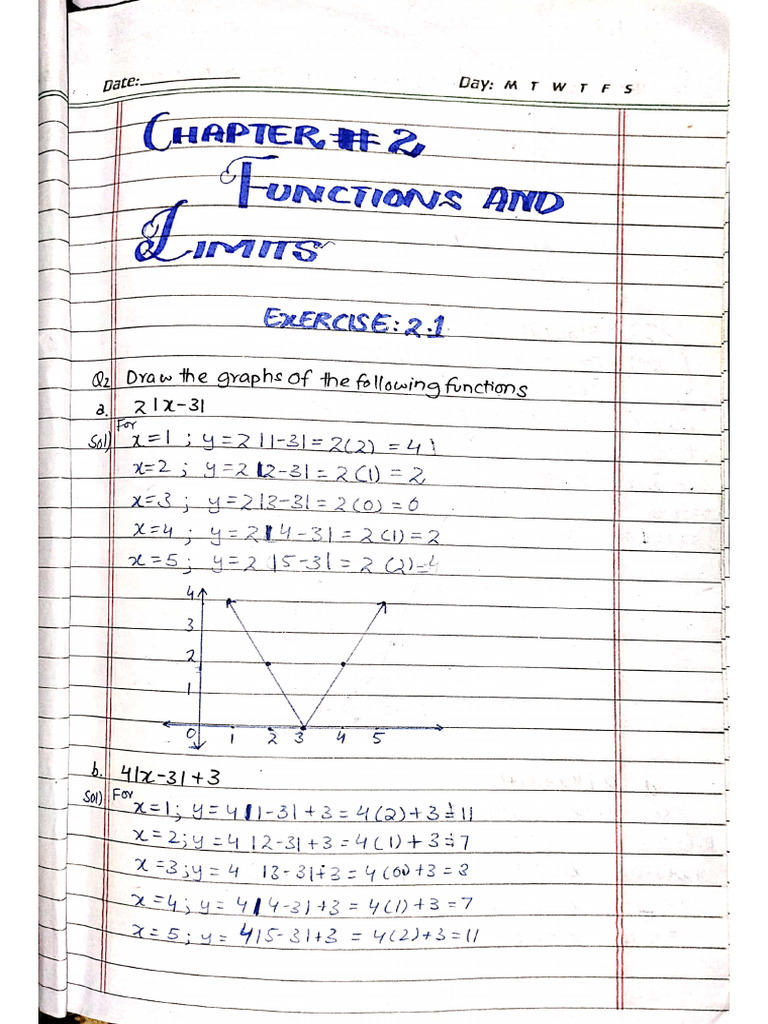 Date:
Day: M T W T F S
CHAPTER # 2
FUNCTIONS AND
LIMITS
EXERCISE: 2.1
Q2 Draw the graphs of the following functions
a. 2|x-3|
Sol) For
x=1 ; y=2|1-3|=2(2) =4
x=2 ; y=2|2-3|=2(1)=2
x=3 ; y=2|3-3|=2(0)=0
x=4 ; y=2|4-3|=2(1)=2
x=5 ; y=2|5-3|=2(2)=4
4
3
2
1
0 1 2 3 4 5
b. 4|x-3|+3
Sol) For
x=1; y=4|1-3|+3=4(2)+3=11
x=2; y=4|2-3|+3=4(1)+3=7
x=3; y=4 |3-3|+3=4(0)+3=3
x=4; y=4|4-3|+3=4(1)+3=7
x=5; y=4|5-3|+3=4(2)+3=11